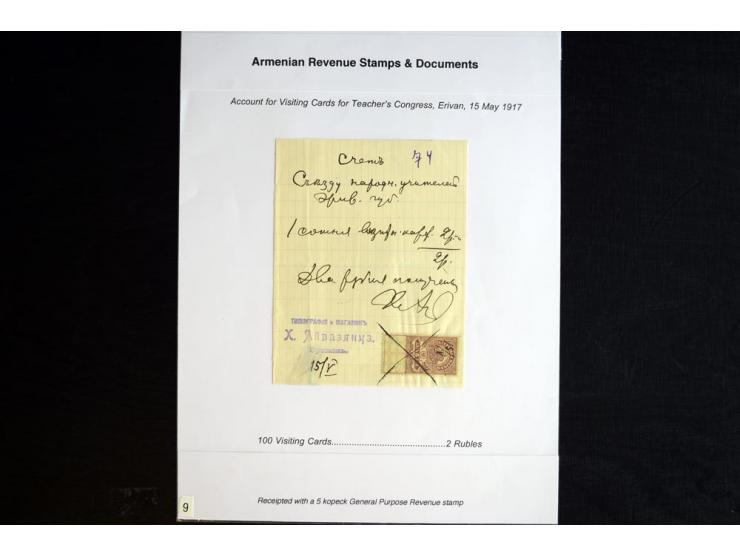 Armenian Revenue Stamps & Documents
Account for Visiting Cards for Teacher's Congress, Erivan, 15 May 1917
Счетъ 74
Съѣзду народн. учителей
Эрив. губ.
1 сотня визитн. карт. 2р.
2р.
Два рубля получены
ТИПОГРАФІЯ и МАГАЗИНЪ
Х. Айвазянца.
15/V
100 Visiting Cards...........................................2 Rubles
Receipted with a 5 kopeck General Purpose Revenue stamp
9